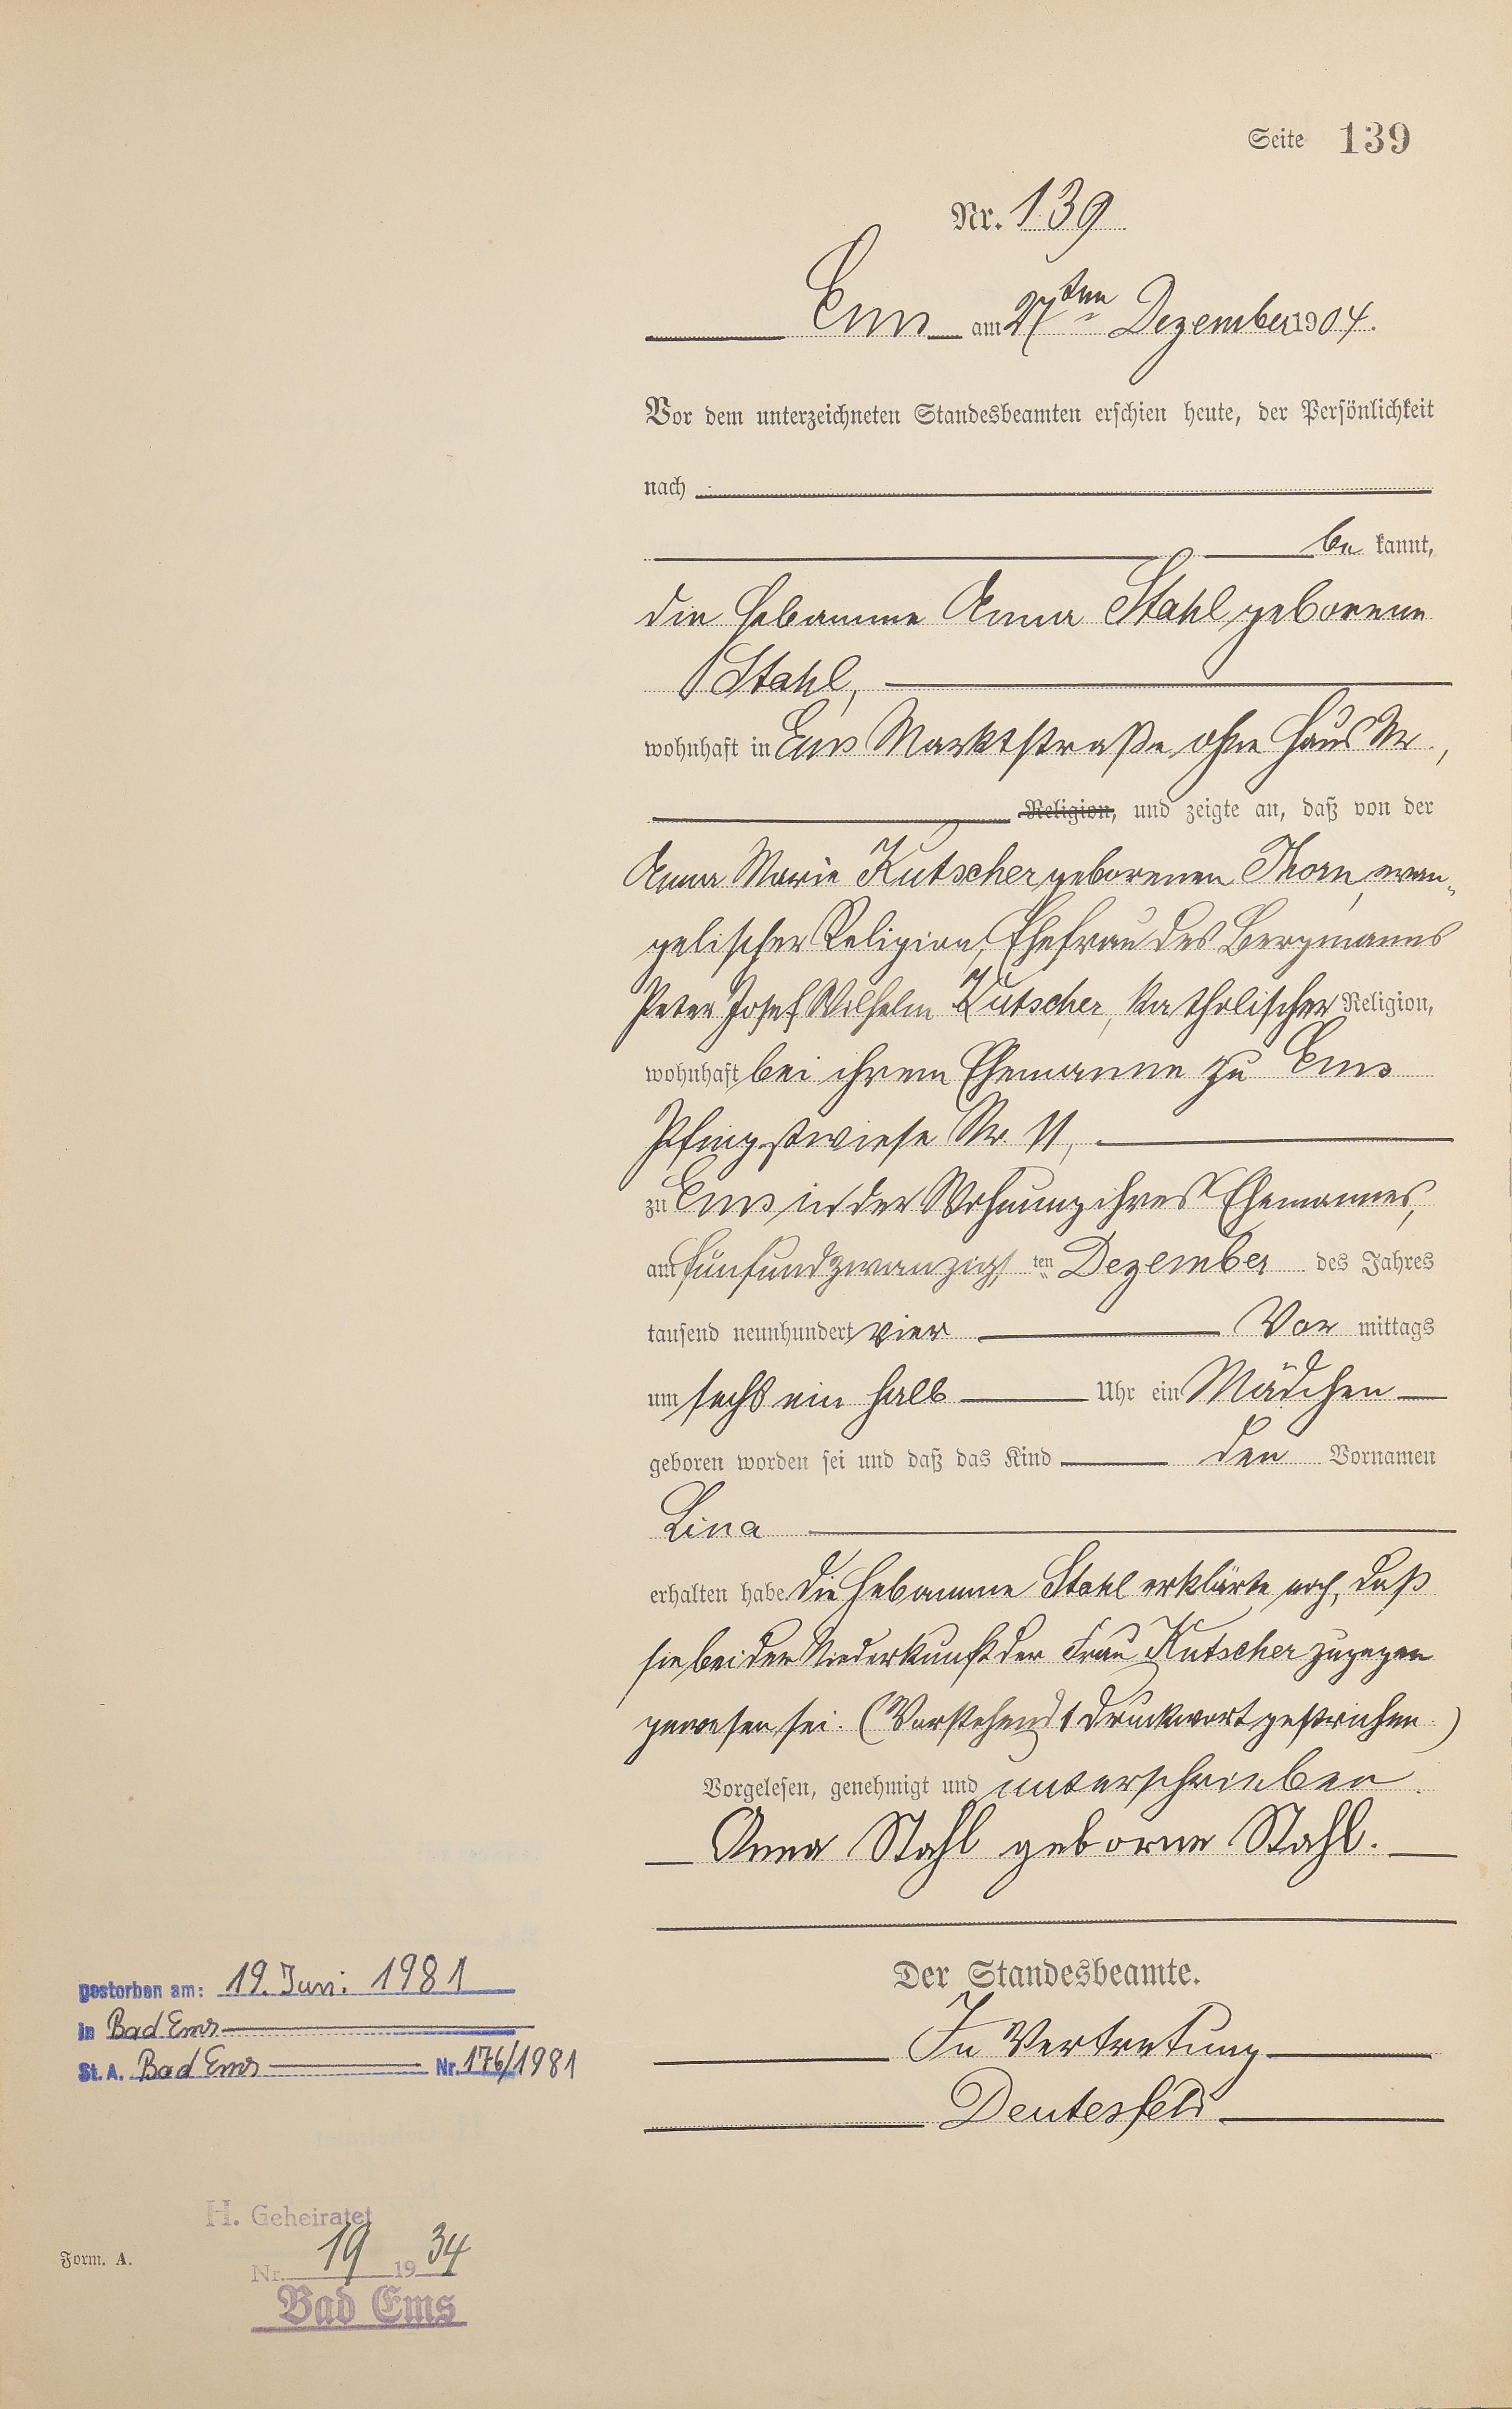 Seite 139
Nr. 139
Ems am 27ten Dezember 1904.
Vor dem unterzeichneten Standesbeamten erschien heute, der Persönlichkeit
nach
be kannt,
die Hebamme Anna Stahl geborene
Stahl,
wohnhaft in Ems Marktstraße ohne Haus Nr.,
Religion, und zeigte an, daß von der
Anna Marie Kutscher geborenen Thorn, evan-
gelischer Religion, Ehefrau des Bergmanns
Peter Josef Wilhelm Kutscher, katholischer Religion,
wohnhaft bei ihrem Ehemanne zu Ems
Pfingstwiese Nr 11,
zu Ems in der Wohnung ihres Ehemannes,
am fünfundzwanzigsten Dezember des Jahres
tausend neunhundert vier Vor mittags
um sechs ein halb Uhr ein Mädchen
geboren worden sei und daß das Kind den Vornamen
Lina
erhalten habe. Die Hebamme Stahl erklärte noch, daß
sie bei der Niederkunft der Frau Kutscher zugegen
gewesen sei. (Vorstehend 1 Druckwort gestrichen.)
Vorgelesen, genehmigt und unterschrieben.
Anna Stahl geborne Stahl.
Der Standesbeamte.
In Vertretung
Deutesfeld
gestorben am: 19. Juni 1981
in Bad Ems
St. A. Bad Ems Nr. 176/1981
H. Geheiratet
Nr. 19 1934
Bad Ems
Form. A.